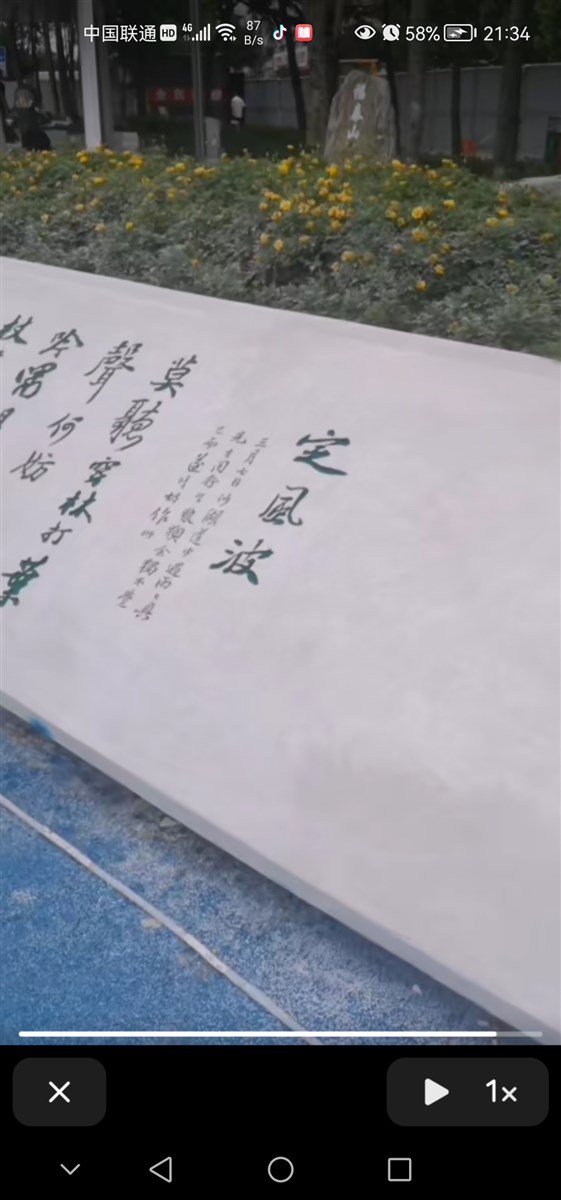 中国联通 HD 4G 87 B/s 58% 21:34
定風波
三月七日沙湖道中遇雨〻具
先去同行皆狼狽余獨不覺
已而遂晴故作此
莫聽穿林打葉
聲何妨
吟
杖
1×